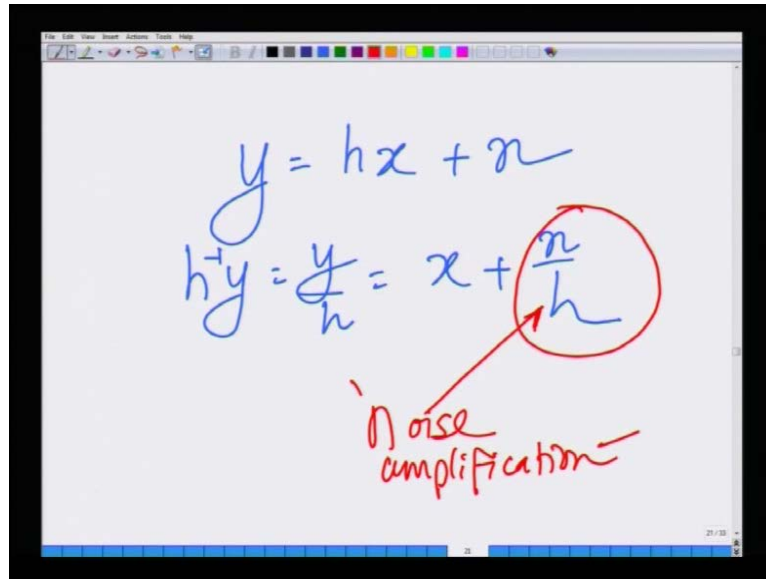 File Edit View Insert Actions Tools Help
y = hx + n
h⁻¹y = y/h = x + n/h
Noise
amplification
21/33
21